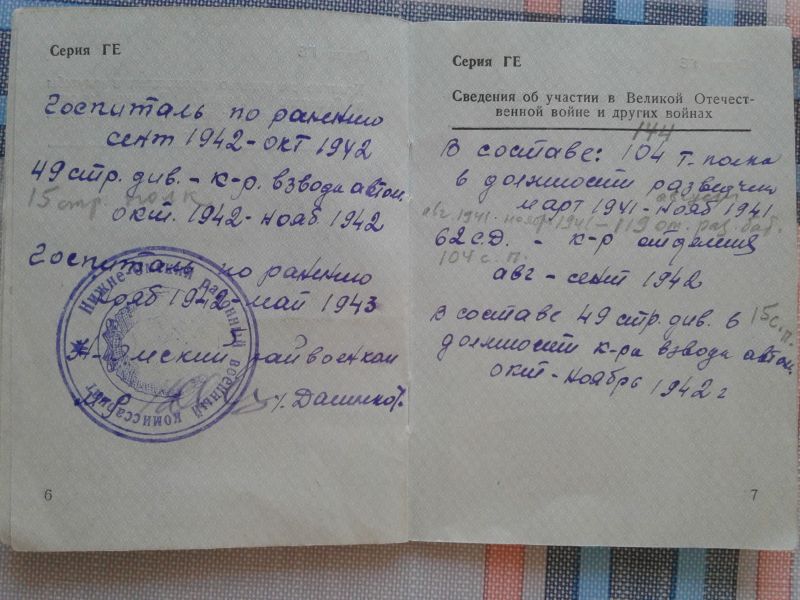 Серия ГЕ
Госпиталь по ранению
сент 1942-окт 1942
49 стр. див. - к-р. взвода автом.
15 стр. полк.
окт. 1942 - нояб 1942
Госпиталь по ранению
нояб 1942-май 1943
райвоенком
Нижне-Омский районный военный комиссариат
6
Серия ГЕ
Сведения об участии в Великой Отечест-
венной войне и других войнах
144
В составе: 104 т. полка
в должности разведчик
март 1941 - нояб 1941
авг. 1941 - нояб 1941 - 119 от. раз. бат.
62 с.д. - к-р отделения
104 с. п.
авг - сент 1942
В составе 49 стр. див. в
15 с. п.
должности к-ра взвода автом.
окт-ноябрь 1942 г
7